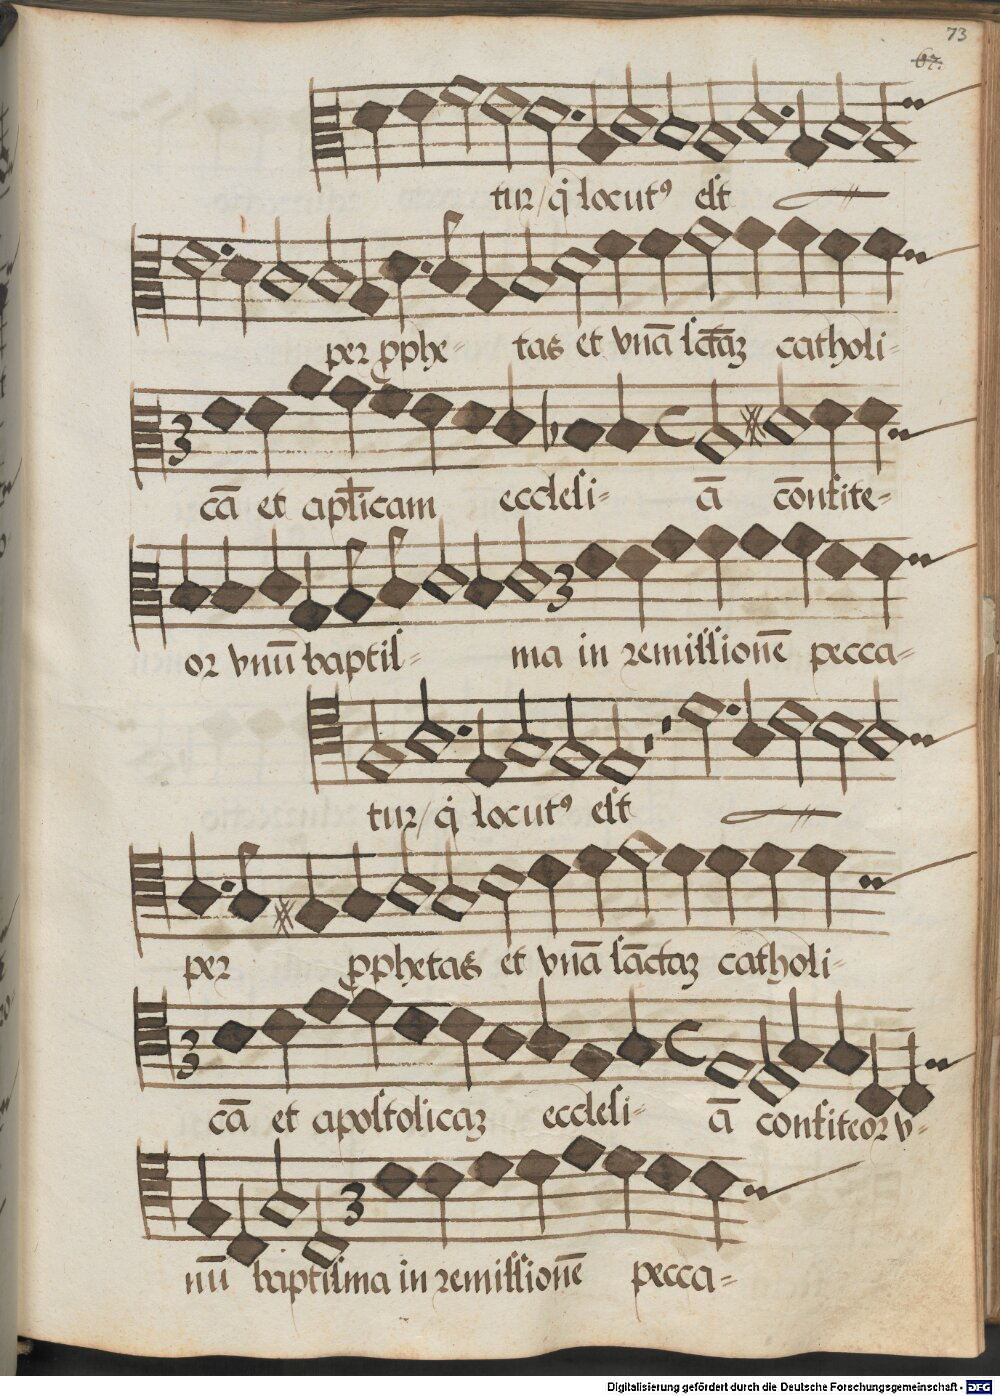 73
67.
tur / q̃ locutꝰ est
per ꝓphe- tas et vnā sctāʒ catholi-
3
cā et apl̄icam ecclesi- ā cōnfite-
3
or vnū baptis- ma in remissionē pecca-
tur / q̃ locutꝰ est
per ꝓphetas et vnā sāctaʒ catholi-
3
cā et apostolicaʒ ecclesi- ā confiteor v-
3
nū baptisma in remissionē pecca-
Digitalisierung gefördert durch die Deutsche Forschungsgemeinschaft - DFG